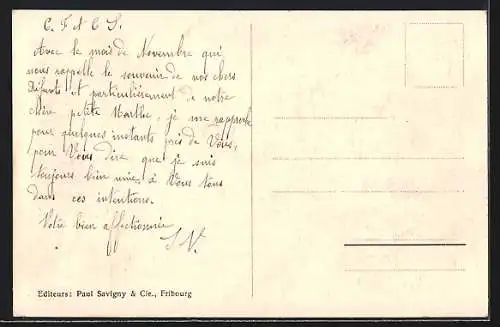 C. F. A C S.
Avec le mois de Novembre qui
nous rappelle le souvenir de nos chers
Défunts et particulièrement de notre
chère petite Marthe, je me rapproche
pour quelques instants près de Vous,
pour Vous dire que je suis
toujours bien unie à Vous tous
dans ces intentions.
Votre bien affectionnée
S V.
Editeurs: Paul Savigny & Cie., Fribourg